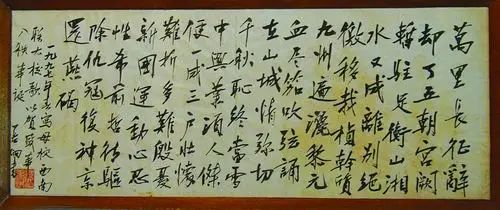 萬里長征辭
却了五朝宮闕
暫駐足衡山湘
水又成離別絕
徼移栽楨幹質
九州遍灑黎元
血尽笳吹弦誦
在山城情弥切
千秋恥終當雪
中興業須人傑
便一成三戶壯懷
難折多難殷憂
新國運動心忍
性希前哲待驅
除仇寇復神京
還燕碣
一九九七年寫母校西南
聯大校歌以賀
八秩華誕